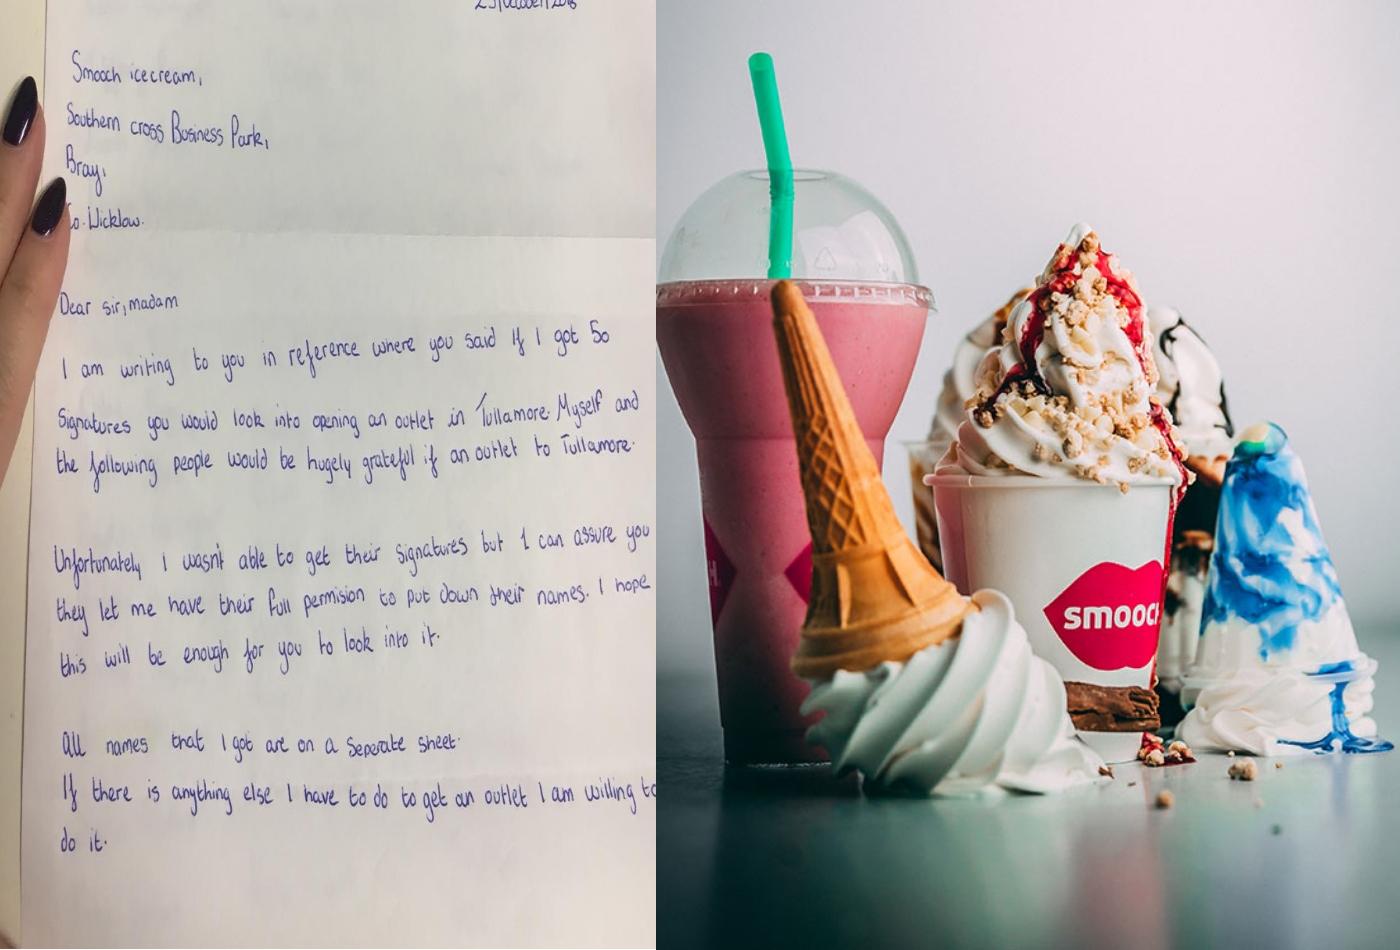 Smooch icecream,
Southern cross Business Park,
Bray,
Co. Wicklow.
Dear sir, madam
I am writing to you in reference where you said if I got 50
Signatures you would look into opening an outlet in Tullamore. Myself and
the following people would be hugely grateful if an outlet to Tullamore.
Unfortunately I wasn't able to get their signatures but I can assure you
they let me have their full permision to put down their names. I hope
this will be enough for you to look into it.
All names that I got are on a seperate sheet.
If there is anything else I have to do to get an outlet I am willing to
do it.
H.
smooch